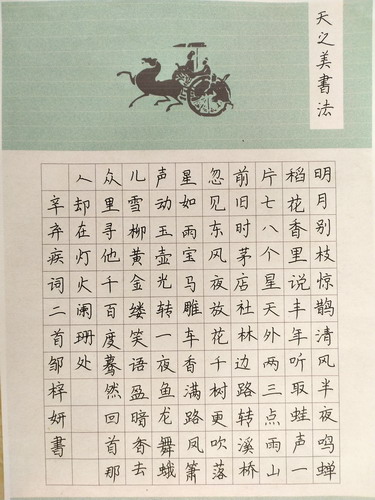 天之美書法
明月别枝惊鹊清风半夜鸣蝉
稻花香里说丰年听取蛙声一
片七八个星天外两三点雨山
前旧时茅店社林边路转溪桥
忽见东风夜放花千树更吹落
星如雨宝马雕车香满路凤箫
声动玉壶光转一夜鱼龙舞蛾
儿雪柳黄金缕笑语盈暗香去
众里寻他千百度蓦然回首那
人却在灯火阑珊处
辛弃疾词二首邹梓妍書